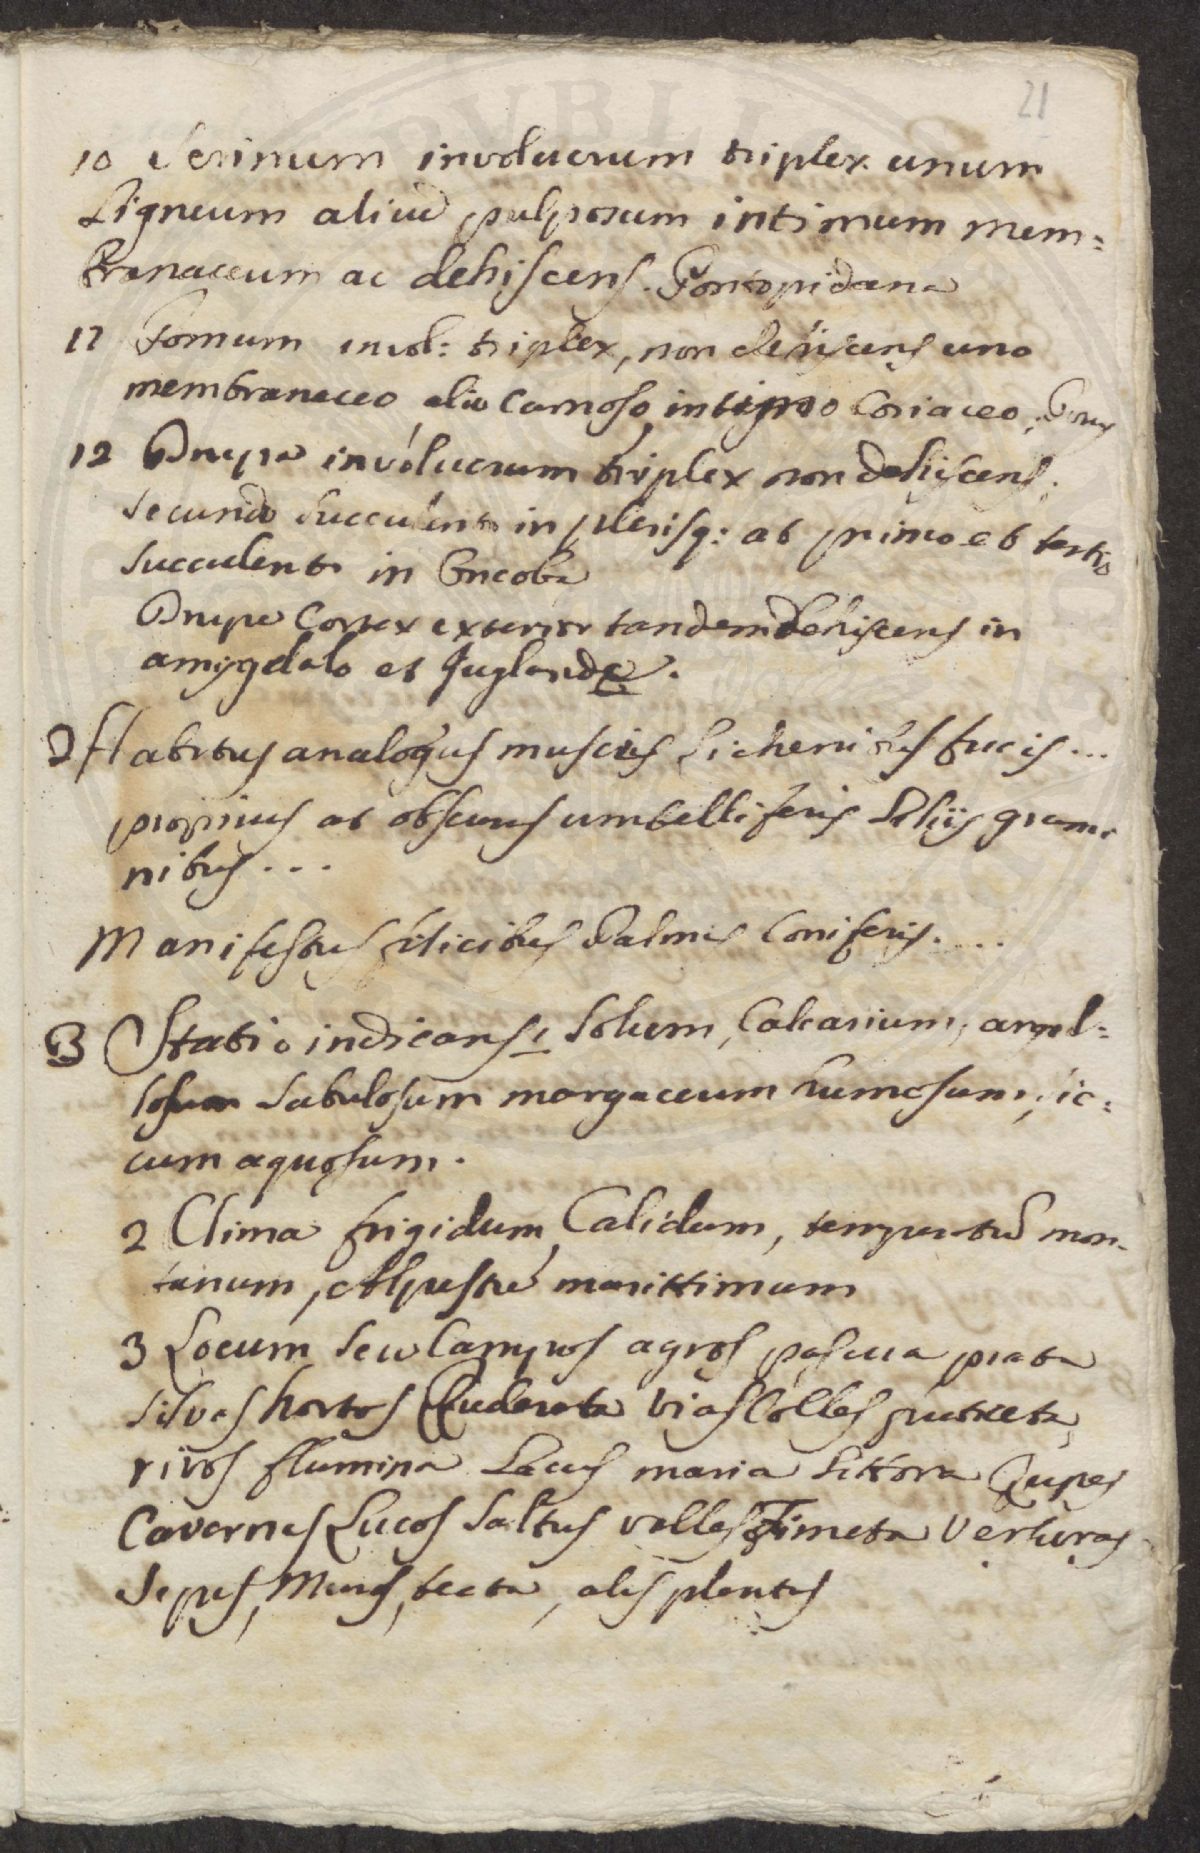 21
10 Serinum involucrum triplex unum
Ligneum aliud pulposum intimum mem=
branaceum ac dehiscens. Pontopidana
11 Pomum invol: triplex, non dehiscens uno
membranaceo alio Carnoso intimo Coriaceo,
12 Drupa involucrum triplex non dehiscens,
secundo succulento in plerisq: at primo et tertio
succulento in Oncoba
Drupe Cortex exterior tandem dehiscens in
amygdalo et Juglande.
2 Habitus analogus muscis Lichenibus fucis...
proprius at obscurus umbelliferis Loliis grami
nibus...
Manifestus filicibus Palmis Coniferis....
3 Statio indicans 1 Solum, Calcarium, argil=
losum Sabulosum margaceum humosum, sic=
cum aquosum.
2 Clima frigidum, Calidum, temperatum mon-
tanum, Alpestre marittimum
3 Locum seu Campos agros pascua prata
silvas hortos Ruderata vias Colles fruticeta,
rivos flumina Lacus maria Littora Rupes
Cavernas Lucos Saltus valles Fimeta Versuras
Sepes, Muros, tecta, alis plantas